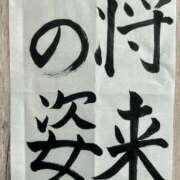 将来
の姿